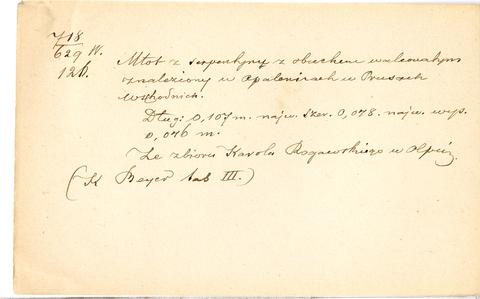 718
629 IV.
126.
Młot z serpentynu z obuchem walcowatym
znaleziony w Opaleńcach w Prusach
wschodnich.
Dług: 0,107 m. najw. szer. 0,078. najw. wys.
0,046 m.
Ze zbioru Karola Rogawskiego w Ołpin.
(K Beyer tab III.)